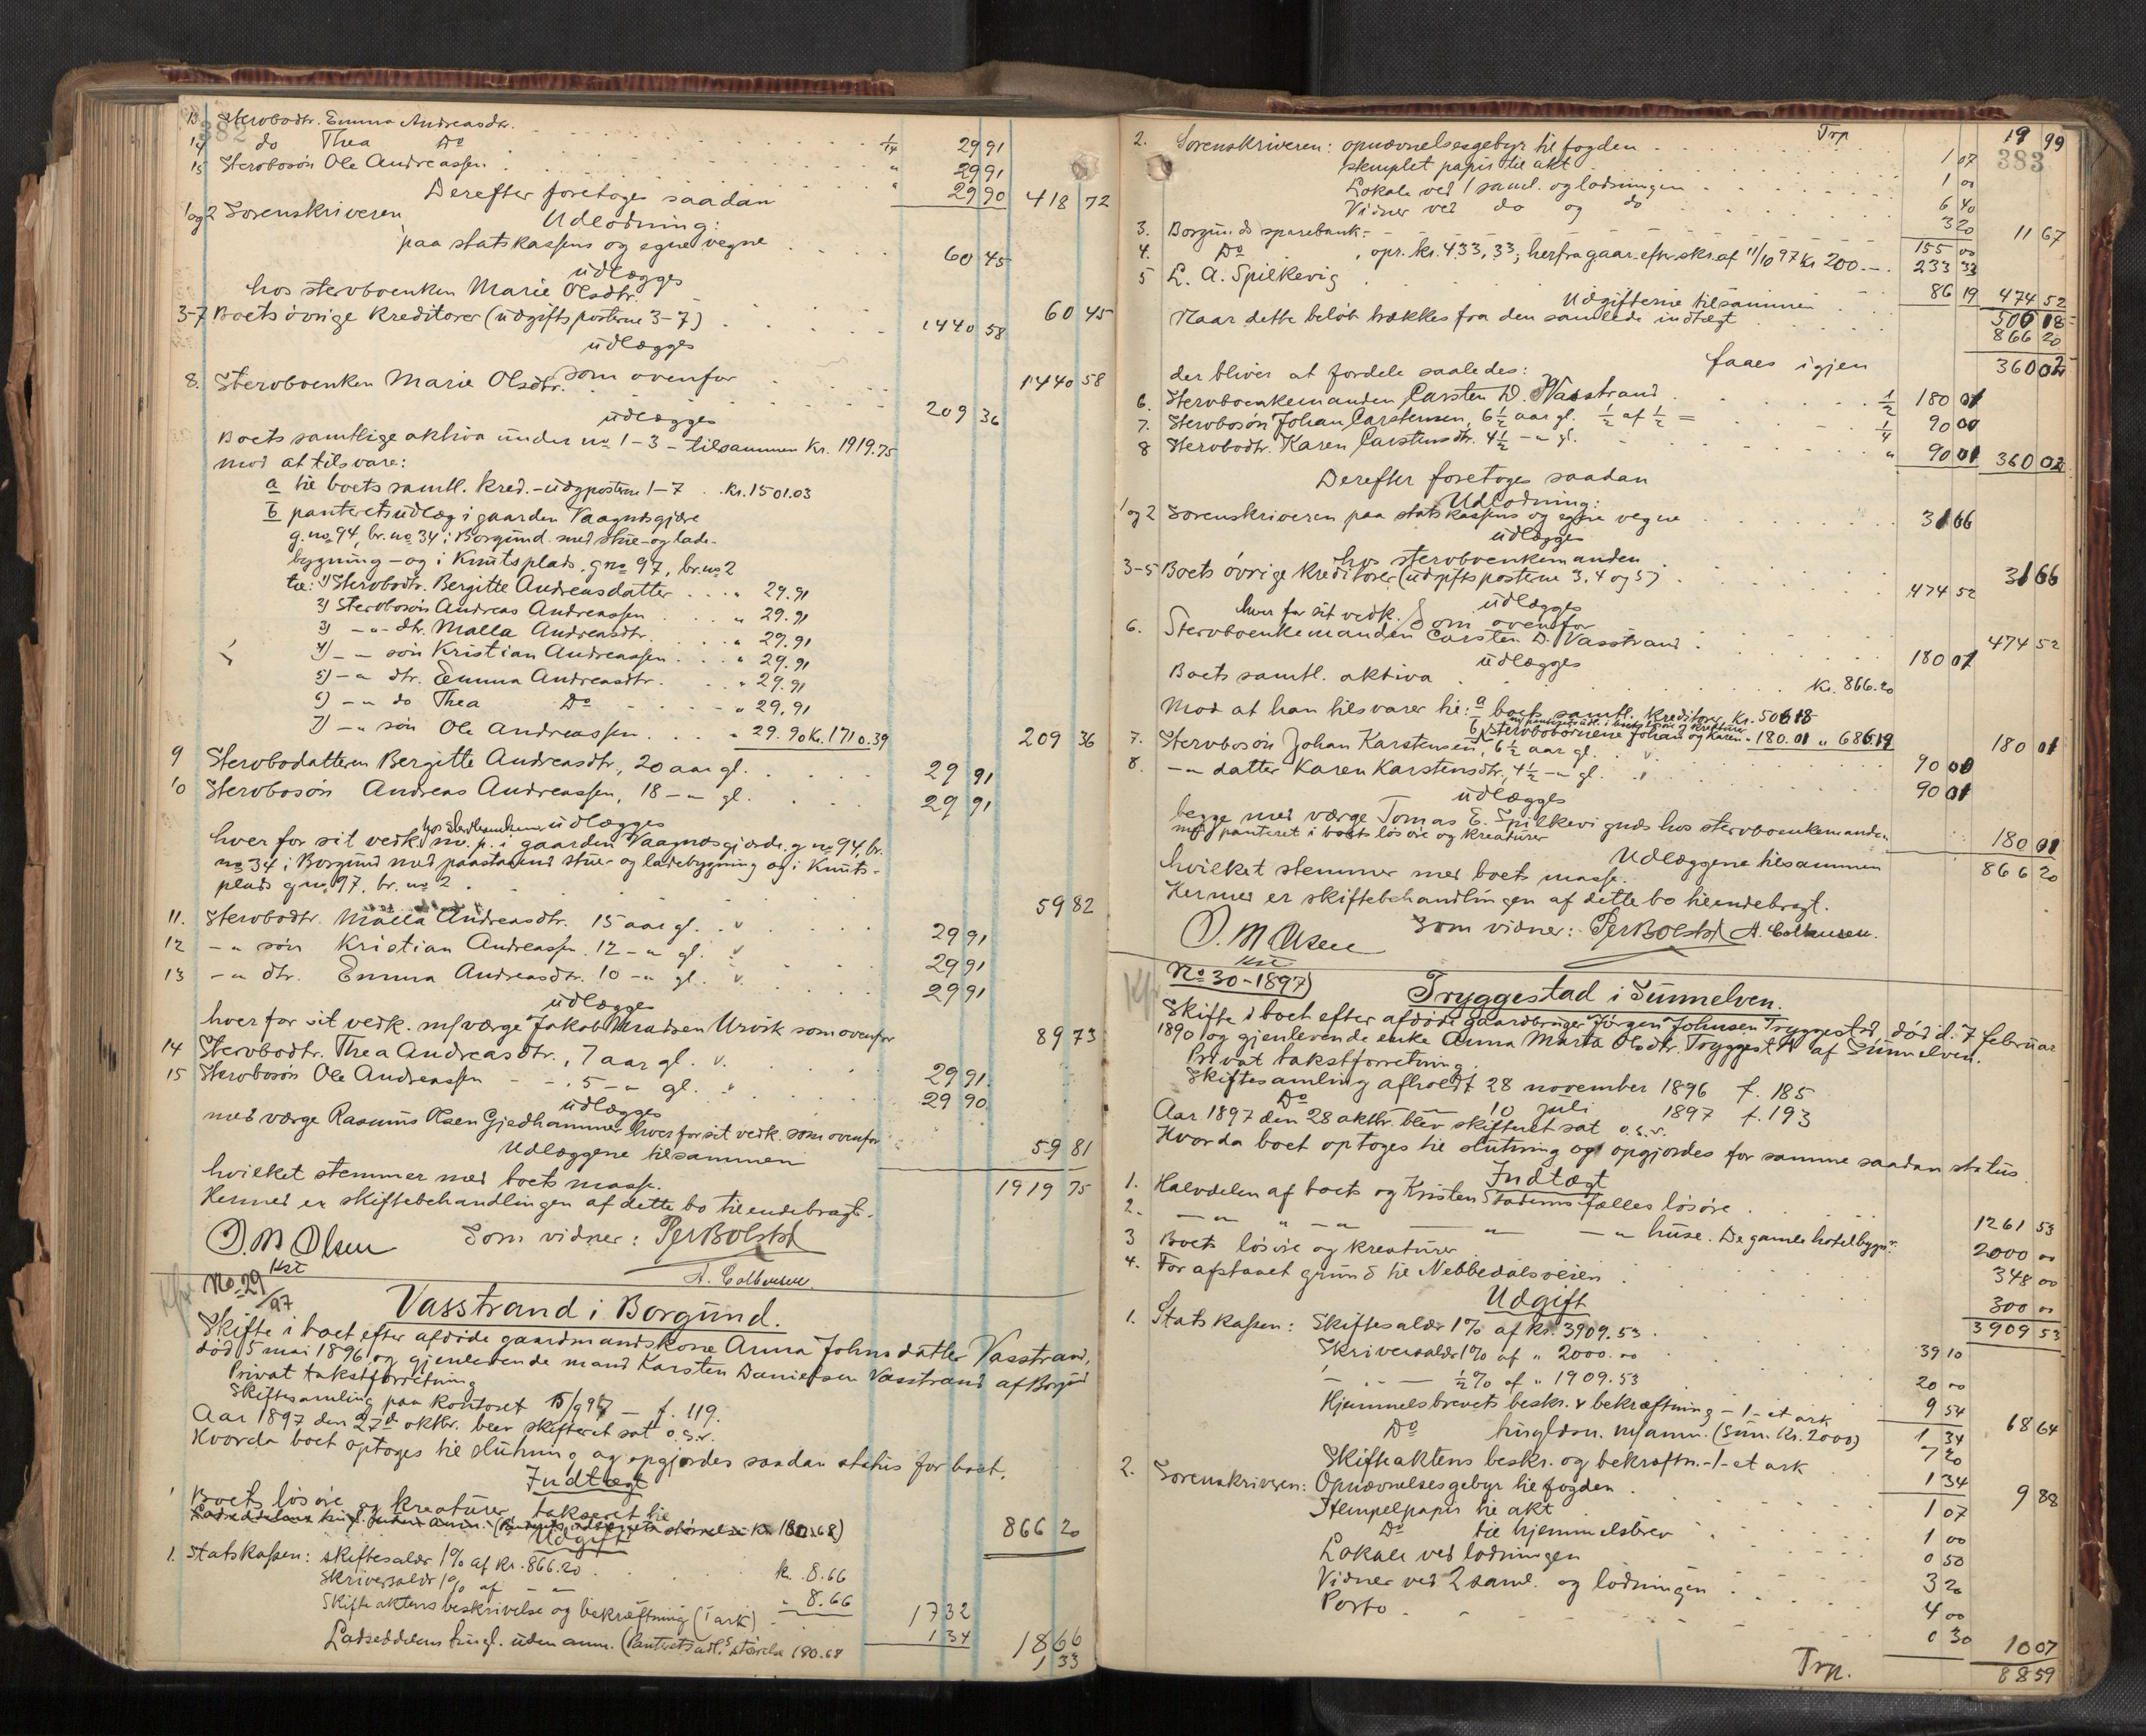 382
13. Sterbodtr. Emma Andreasdtr. 1/14 29 91
14 do Thea Do " 29 91
15 Sterbosøn Ole Andreassen " 29 90 418 72
Derefter foretoges saadan
Udlodning:
1 og 2 Sorenskriveren
paa statskassens og egne vegne 60 45
udlægges
hos sterboenken Marie Olsdtr. 60 45
3-7 Boets övrige kreditorer (udgiftsposterne 3-7) 1440 58
udlægges
som ovenfor 1440 58
8. Sterboenken Marie Olsdtr. 209 36
udlægges
Boets samtlige aktiva under no 1-3 - tilsammen Kr. 1919.75
mod at tilsvare:
a til boets samtl. kred. - udgposterne 1-7 . Kr. 1501.03
b panteretsudlæg i gaarden Vaagnesgjære
g. no 94, br. no 34 i Borgund med stue- og lade-
bygning - og i Knutsplads. g no 97, br. no 2
til: 1) Sterbodtr. Bergitte Andreasdatter " 29.91
2) Sterbosön Andreas Andreassen " 29.91
3) -"- dtr. Malla Andreasdtr. " 29.91
4) -"- sön Kristian Andreassen " 29.91
5) -"- dtr. Emma Andreasdtr. " 29.91
6) -"- do Thea Do " 29.91
7) -"- sön Ole Andreassen " 29.90 Kr. 1710.39 209 36
9 Sterbodatteren Bergitte Andreasdtr., 20 aar gl. 29 91
10 Sterbosön Andreas Andreassen, 18 -"- gl. 29 91
udlægges
hver for sit vedk. hos sterboenken m. p. i gaarden Vaagnesgjærde g no 94, br.
no 34 i Borgund med paastaaend stue- og ladebygning og i Knuts-
plads g no 97, br. no 2. 59 82
11. Sterbodtr. Malla Andreasdtr. 15 aar gl. v 29 91
12 -"- sön Kristian Andreassen. 12 -"- gl. v 29 91
13 -"- dtr. Emma Andreasdtr. 10 -"- gl. v. 29 91
udlægges
hver for sit vedk. m/værge Jakob Knudsen Urvik som ovenfor 89 73
14 Sterbodtr. Thea Andreasdtr., 7 aar gl. v. 29 91
15 Sterbosön Ole Andreassen - -. 5 -"- gl. v 29 90
udlægges
med værge Rasmus Olsen Gjedhammer hver for sit vedk. som ovenfor 59 81
Udlæggene tilsammen 1919 75
hvilket stemmer med boets masse.
Hermed er skiftebehandlingen af dette bo tilendebragt.
O. M Olsen
kst
Som vidner: Per Bolstad
A. Colbensen.
No. 29/97
Vasstrand i Borgund.
Skifte i boet efter afdøde gaardmandskone Anna Johnsdatter Vasstrand,
död 5 mai 1896, og gjenlevende mand Karsten Danielsen Vasstrand af Borgund
Privat takstforretning
Skiftesamling paa kontoret 15/9 97 - f. 119.
Aar 1897 den 27de oktbr. blev skifteret sat o.s.v.
Hvorda boet optoges til slutning og opgjordes saadan status for boet.
Indtægt
1 Boets lösöre og kreaturer takseret til 866 20
Udgift
1. Statskassen: skiftesalær 1% af kr. 866.20 kr. 8.66
Skriversalær 1% af -"- " 8.66 17 32
Skifteaktens beskrivelse og bekræftning (1 ark) 1 34 18 66
Ladseddelens tingl. uden anm. (Panteretsudl.s störrelse 180.68 1 33
383
Trp 19 99
2. Sorenskriveren: opnævnelsesgebyr til fogden 1 07
stemplet papir til akt 1 00
Lokale ved 1 saml. og lodningen 6 40
Vidner ved do og do 3 20 11 67
3. Borgunds sparebank: 155 00
4. Do , opr. kr. 433,33; herfra gaar efter skr. af 11/10 97 Kr 200.- 233 33
5 L. A. Spilkevig 86 19 474 52
Udgifterne tilsammen 506 18
Naar dette belöb trækkes fra den samlede indtægt 866 20
faaes igjen 360 02
der bliver at fordele saaledes:
6. Sterboenkemanden Carsten D. Vasstrand 1/2 180 01
7. Sterbosön Johan Carstensen, 6 1/2 aar gl. 1/2 af 1/2 = 1/4 90 00
8 Sterbodtr. Karen Carstensdtr. 4 1/2 -"- gl. " 90 01 360 02
Derefter foretoges saadan
Udlodning:
1 og 2 Sorenskriveren paa statskassens og egne vegne 31 66
udlægges
hos sterboenkemanden 31 66
3-5 Boets övrige kreditorer (udgiftsposterne 3, 4 og 5) 474 52
udlægges
hver for sit vedk. som ovenfor 474 52
6. Sterboenkemanden Carsten D. Vasstrand 180 01
udlægges
Boets samtl. aktiva Kr. 866.20
Mod at han tilsvarer til: a boets samtl. kreditorer Kr. 506 18
m/ panteretsudl. i boets lösöre og kreaturer
b sterbobörnene Johan og Karen " 180.01 " 686.19 180 01
7. Sterbosön Johan Karstensen, 6 1/2 aar gl. v. 90 00
8. -"- datter Karen Karstensdtr, 4 1/2 -"- gl. " 90 01
udlægges
begge med værge Tomas E. Spilkevignæs hos sterboenkemanden
med panteret i boets lösöre og kreaturer 180 01
Udlæggene tilsammen 866 20
hvilket stemmer med boets masse.
Hermed er skiftebehandlingen af dette bo tilendebragt.
O. M Olsen
kst
Som vidner: Per Bolstad A. Colbensen.
No 30-1897)
Tryggestad i Sunnelven.
Skifte i boet efter afdöde gaardbruger Jörgen Johnsen Tryggestad död d. 7 februar
1890 og gjenlevende enke Anna Marta Olsdtr. Tryggestad af Sunnelven.
Privat takstforretning.
Skiftesamling afholdt 28 november 1896 f. 185
Do 10 juli 1897 f. 193
Aar 1897 den 28 oktbr. blev skifteret sat o.s.v.
Hvorda boet optoges til slutning og opgjordes for samme saadan status.
Indtægt
1. Halvdelen af boets og Kristen Stadems fælles lösöre 1261 53
2. -"- " -"- -"- -"- huse. De gamle hotelbygn. 2000 00
3 Boets lösöre og kreaturer 348 00
4. For afstaaet grund til Nebbedalsveien 300 00
3909 53
Udgift
1. Statskassen: Skiftesalær 1% af kr. 3909.53 39 10
Skriversalær 1% af " 2000.00 20 00
- " - 1/2% af " 1909.53 9 54 68 64
Hjemmelsbrevets beskr. & bekræftning - 1 - et ark 1 34
Do tinglæsn. m/anm. (sum. kr. 2000) 7 20
Skifteaktens beskr. og bekræftn. - 1 - et ark 1 34 9 88
2. Sorenskriveren: Opnævnelsesgebyr til fogden 1 07
Stempelpapir til akt 1 00
Do til hjemmelsbrev 0 50
Lokale ved lodningen 3 20
Vidner ved 2 saml. og lodningen 4 00
Porto 0 30 10 07
Trp. 88 59